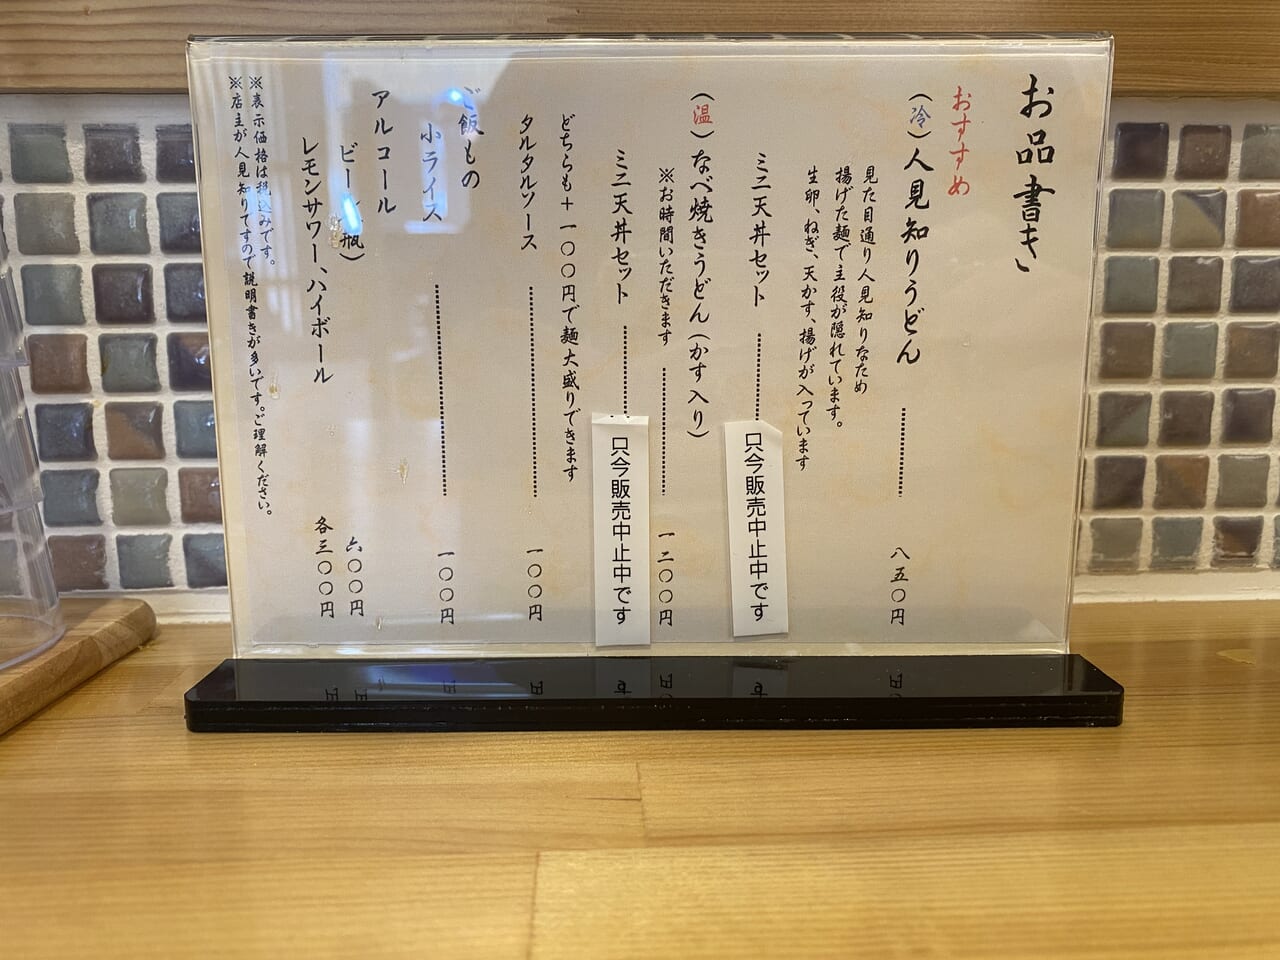 お品書き
おすすめ
（冷）人見知りうどん 八五〇円
見た目通り人見知りなため
揚げた麺で主役が隠れています。
生卵、ねぎ、天かす、揚げが入っています
ミニ天丼セット 只今販売中止中です
（温）なべ焼きうどん（かす入り）
※お時間いただきます 一二〇〇円
ミニ天丼セット 只今販売中止中です
どちらも＋一〇〇円で麺大盛りできます
タルタルソース 一〇〇円
ご飯もの
小ライス 一〇〇円
アルコール
ビール（瓶） 六〇〇円
レモンサワー、ハイボール 各三〇〇円
※表示価格は税込みです。
※店主が人見知りですので説明書きが多いです。ご理解ください。